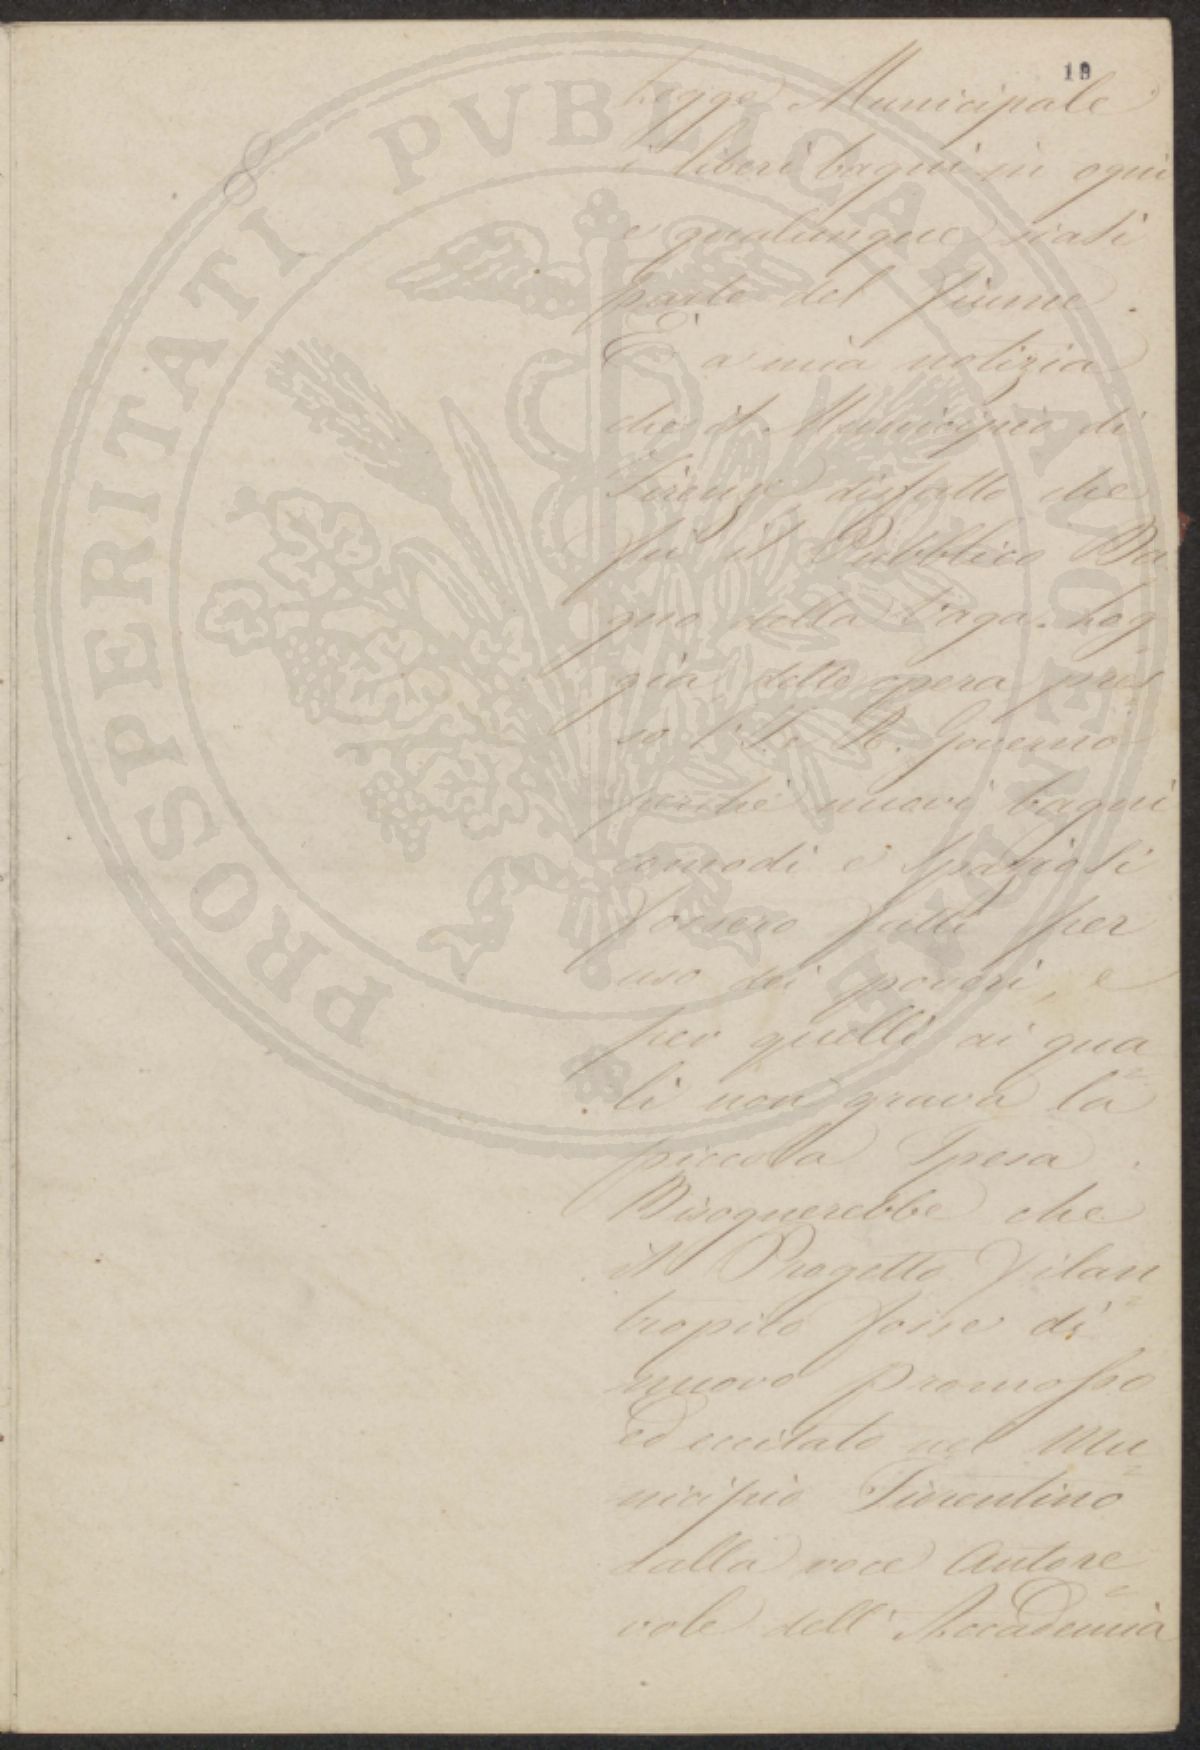 19
Legge Municipale
i liberi bagni in ogni
e qualunque siasi
parte del fiume.
E' a mia notizia
che il Municipio di
Firenze disfatto che
fù il Pubblico Ba
gno della Vaga-Log
gia, delle opera pres
so l'I. e R. Governo
perché nuovi bagni
comodi e spaziosi
fossero fatti per
uso dei poveri, e
per quelli ai qua
li non grava la
piccola spesa.
Bisognerebbe che
il Progetto filan
tropico fosse di
nuovo promosso
ed eccitato nel Mu
nicipio Fiorentino
dalla voce Autore
vole dell'Accademia
PROSPERITATI PVBLICAE AVGENDAE